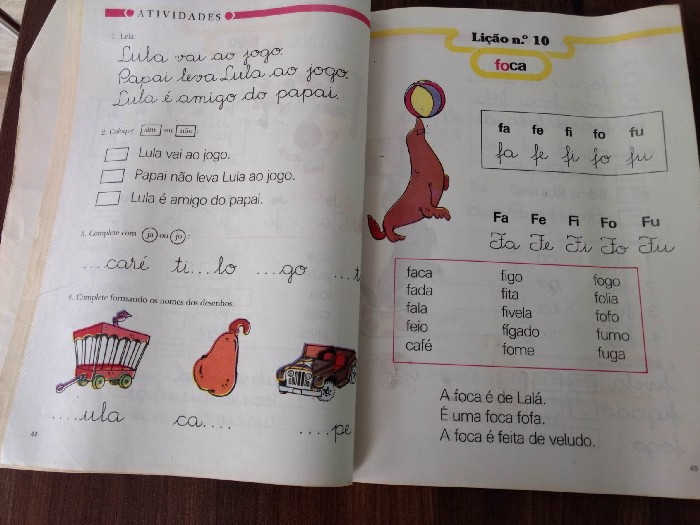 ATIVIDADES
1. Leia:
Lula vai ao jogo.
Papai leva Lula ao jogo.
Lula é amigo do papai.
2. Coloque sim ou não:
Lula vai ao jogo.
Papai não leva Lula ao jogo.
Lula é amigo do papai.
3. Complete com ja ou jo:
...caré ti...lo ...go ...t
4. Complete formando os nomes dos desenhos:
....ula ca.... ....pe
44
Lição n.º 10
foca
fa fe fi fo fu
fa fe fi fo fu
Fa Fe Fi Fo Fu
Fa Fe Fi Fo Fu
faca figo fogo
fada fita folia
fala fivela fofo
feio fígado fumo
café fome fuga
A foca é de Lalá.
É uma foca fofa.
A foca é feita de veludo.
45